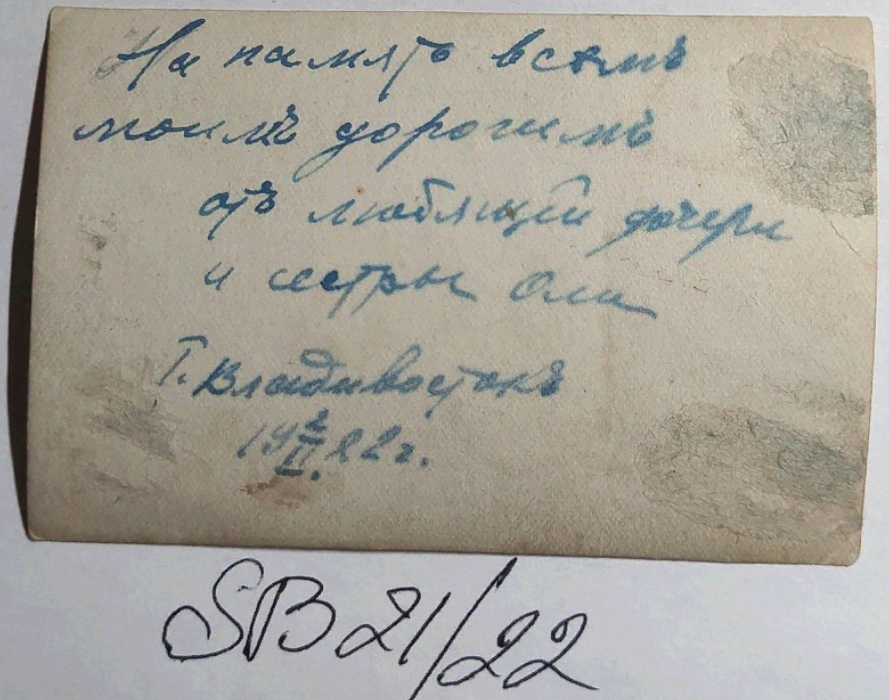 На память всемъ
моимъ дорогимъ
отъ любящей дочери
и сестры Оли
Г. Владивостокъ
19 2/II. 22 г.
SB 21/22